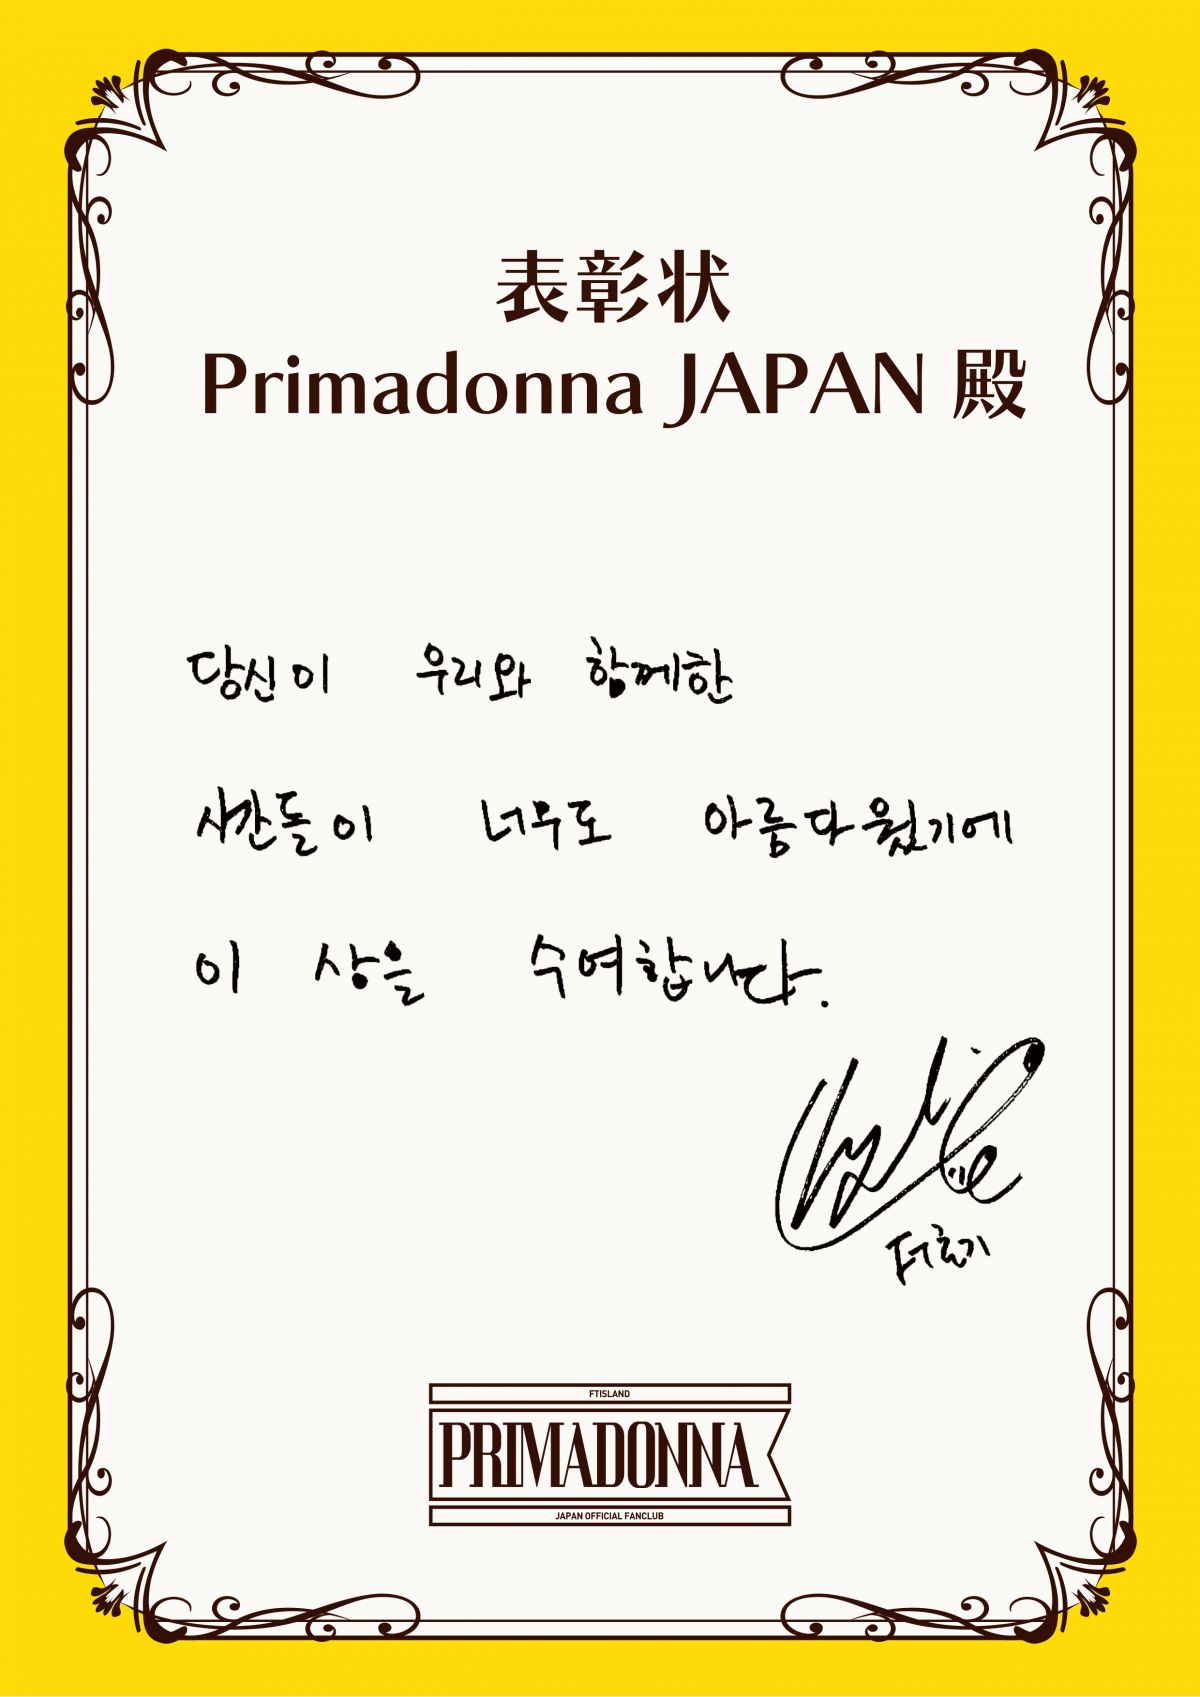 表彰状
Primadonna JAPAN 殿
당신이 우리와 함께한
시간들이 너무도 아름다웠기에
이 상을 수여합니다.
FTISLAND
PRIMADONNA
JAPAN OFFICIAL FANCLUB